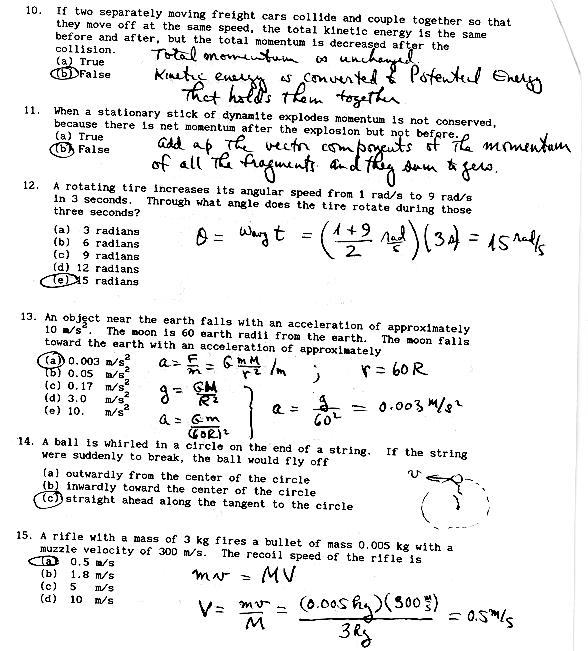 10. If two separately moving freight cars collide and couple together so that
they move off at the same speed, the total kinetic energy is the same
before and after, but the total momentum is decreased after the
collision. Total momentum is unchanged.
(a) True
(b) False Kinetic energy is converted to Potential Energy
That holds them together
11. When a stationary stick of dynamite explodes momentum is not conserved,
because there is net momentum after the explosion but not before.
(a) True
(b) False add up the vector components of the momentum
of all the fragments and they sum to zero.
12. A rotating tire increases its angular speed from 1 rad/s to 9 rad/s
in 3 seconds. Through what angle does the tire rotate during those
three seconds?
(a) 3 radians
(b) 6 radians θ = ωavg t = (1+9/2 rad/s)(3s) = 15 rad/s
(c) 9 radians
(d) 12 radians
(e) 15 radians
13. An object near the earth falls with an acceleration of approximately
10 m/s². The moon is 60 earth radii from the earth. The moon falls
toward the earth with an acceleration of approximately
(a) 0.003 m/s² a = F/m = G mM/r² /m ; r = 60R
(b) 0.05 m/s²
(c) 0.17 m/s² g = GM/R²
(d) 3.0 m/s² a = g/60² = 0.003 m/s²
(e) 10. m/s² a = Gm/(60R)²
14. A ball is whirled in a circle on the end of a string. If the string
were suddenly to break, the ball would fly off
(a) outwardly from the center of the circle
(b) inwardly toward the center of the circle v
(c) straight ahead along the tangent to the circle
15. A rifle with a mass of 3 kg fires a bullet of mass 0.005 kg with a
muzzle velocity of 300 m/s. The recoil speed of the rifle is
(a) 0.5 m/s
(b) 1.8 m/s mv = MV
(c) 5 m/s
(d) 10 m/s V = mv/M = (0.005 kg)(300 m/s)/3 kg = 0.5 m/s